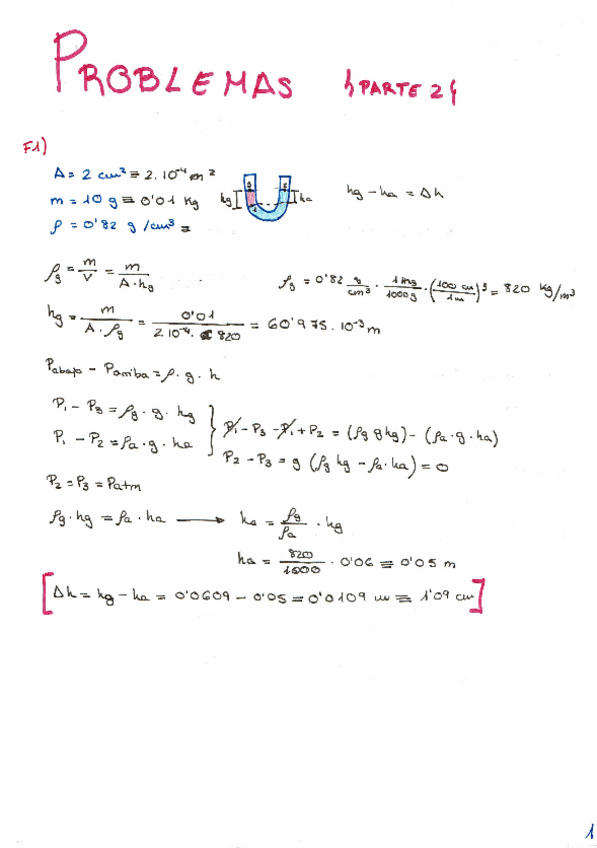 PROBLEMAS {PARTE 2}
F1)
A = 2 cm² ≡ 2·10⁻⁴ m²
m = 10 g ≡ 0'01 Kg
hg ha
hg - ha = Δh
ρ = 0'82 g/cm³ ≡
ρg = m/V = m/(A·hg)
ρg = 0'82 g/cm³ · 1kg/1000g · (100 cm/1m)³ = 820 Kg/m³
hg = m/(A·ρg) = 0'01/(2·10⁻⁴·820) = 60'975·10⁻³ m
Pabajo - Parriba = ρ·g·h
P₁ - P₃ = ρg·g·hg
P₁ - P₂ = ρa·g·ha
P₁ - P₃ - P₁ + P₂ = (ρg g hg) - (ρa·g·ha)
P₂ - P₃ = g (ρg hg - ρa·ha) = 0
P₂ = P₃ = Patm
ρg·hg = ρa·ha → ha = ρg/ρa · hg
ha = 820/1000 · 0'06 ≡ 0'05 m
[Δh = hg - ha = 0'0609 - 0'05 = 0'0109 m ≡ 1'09 cm]
1